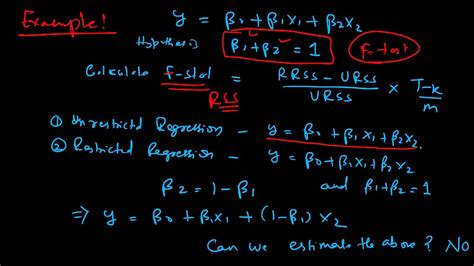 Example!
y = β₁ + β₁x₁ + β₂x₂
Hypothesis β₁ + β₂ = 1 F-test
Calculate F-stat = RRSS - URSS / URSS × T-k / m
RSS
① Unrestricted Regression - y = β₀ + β₁x₁ + β₂x₂.
② Restricted Regression - y = β₀ + β₁x₁ + β₂x₂
and β₁ + β₂ = 1
β₂ = 1 - β₁
⇒ y = β₀ + β₁x₁ + (1-β₁) x₂
Can we estimate the above? No